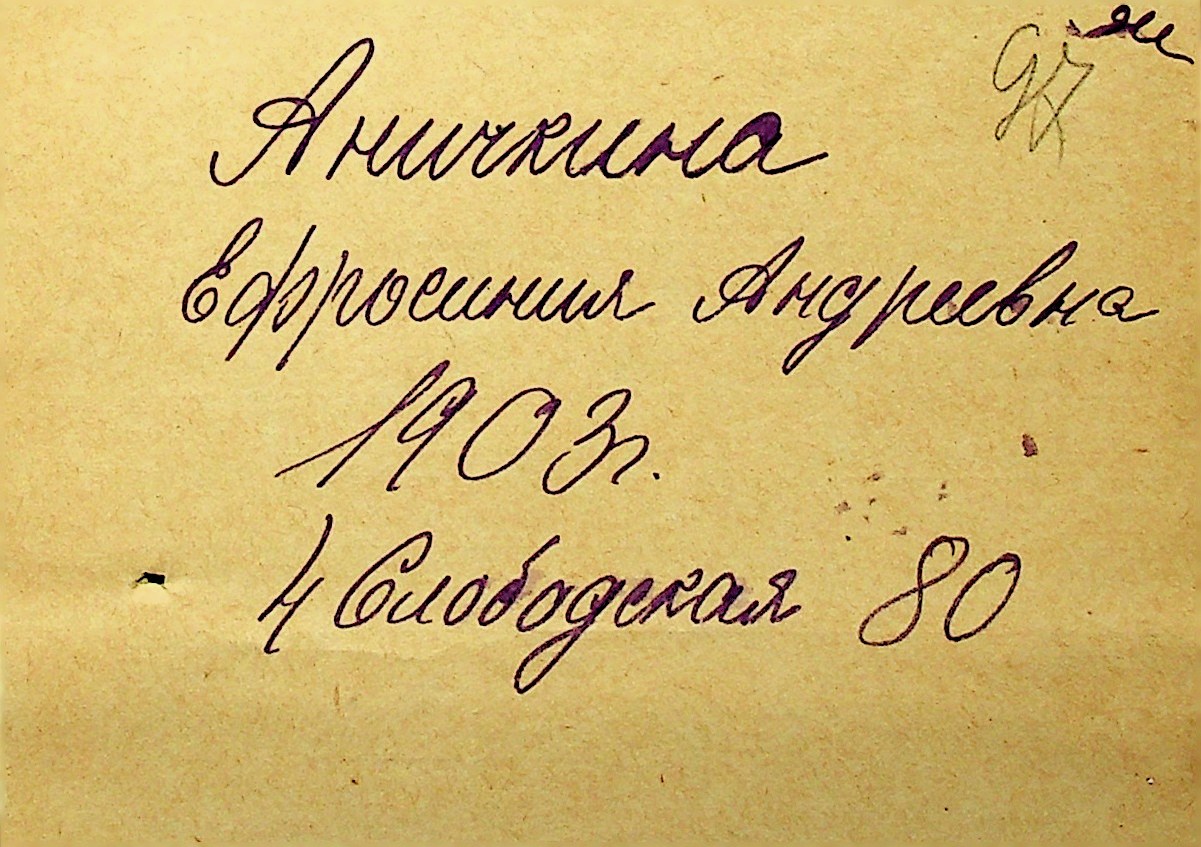 Аничкина
Ефросиния Андреевна
1903 г.
Н Слободская 80